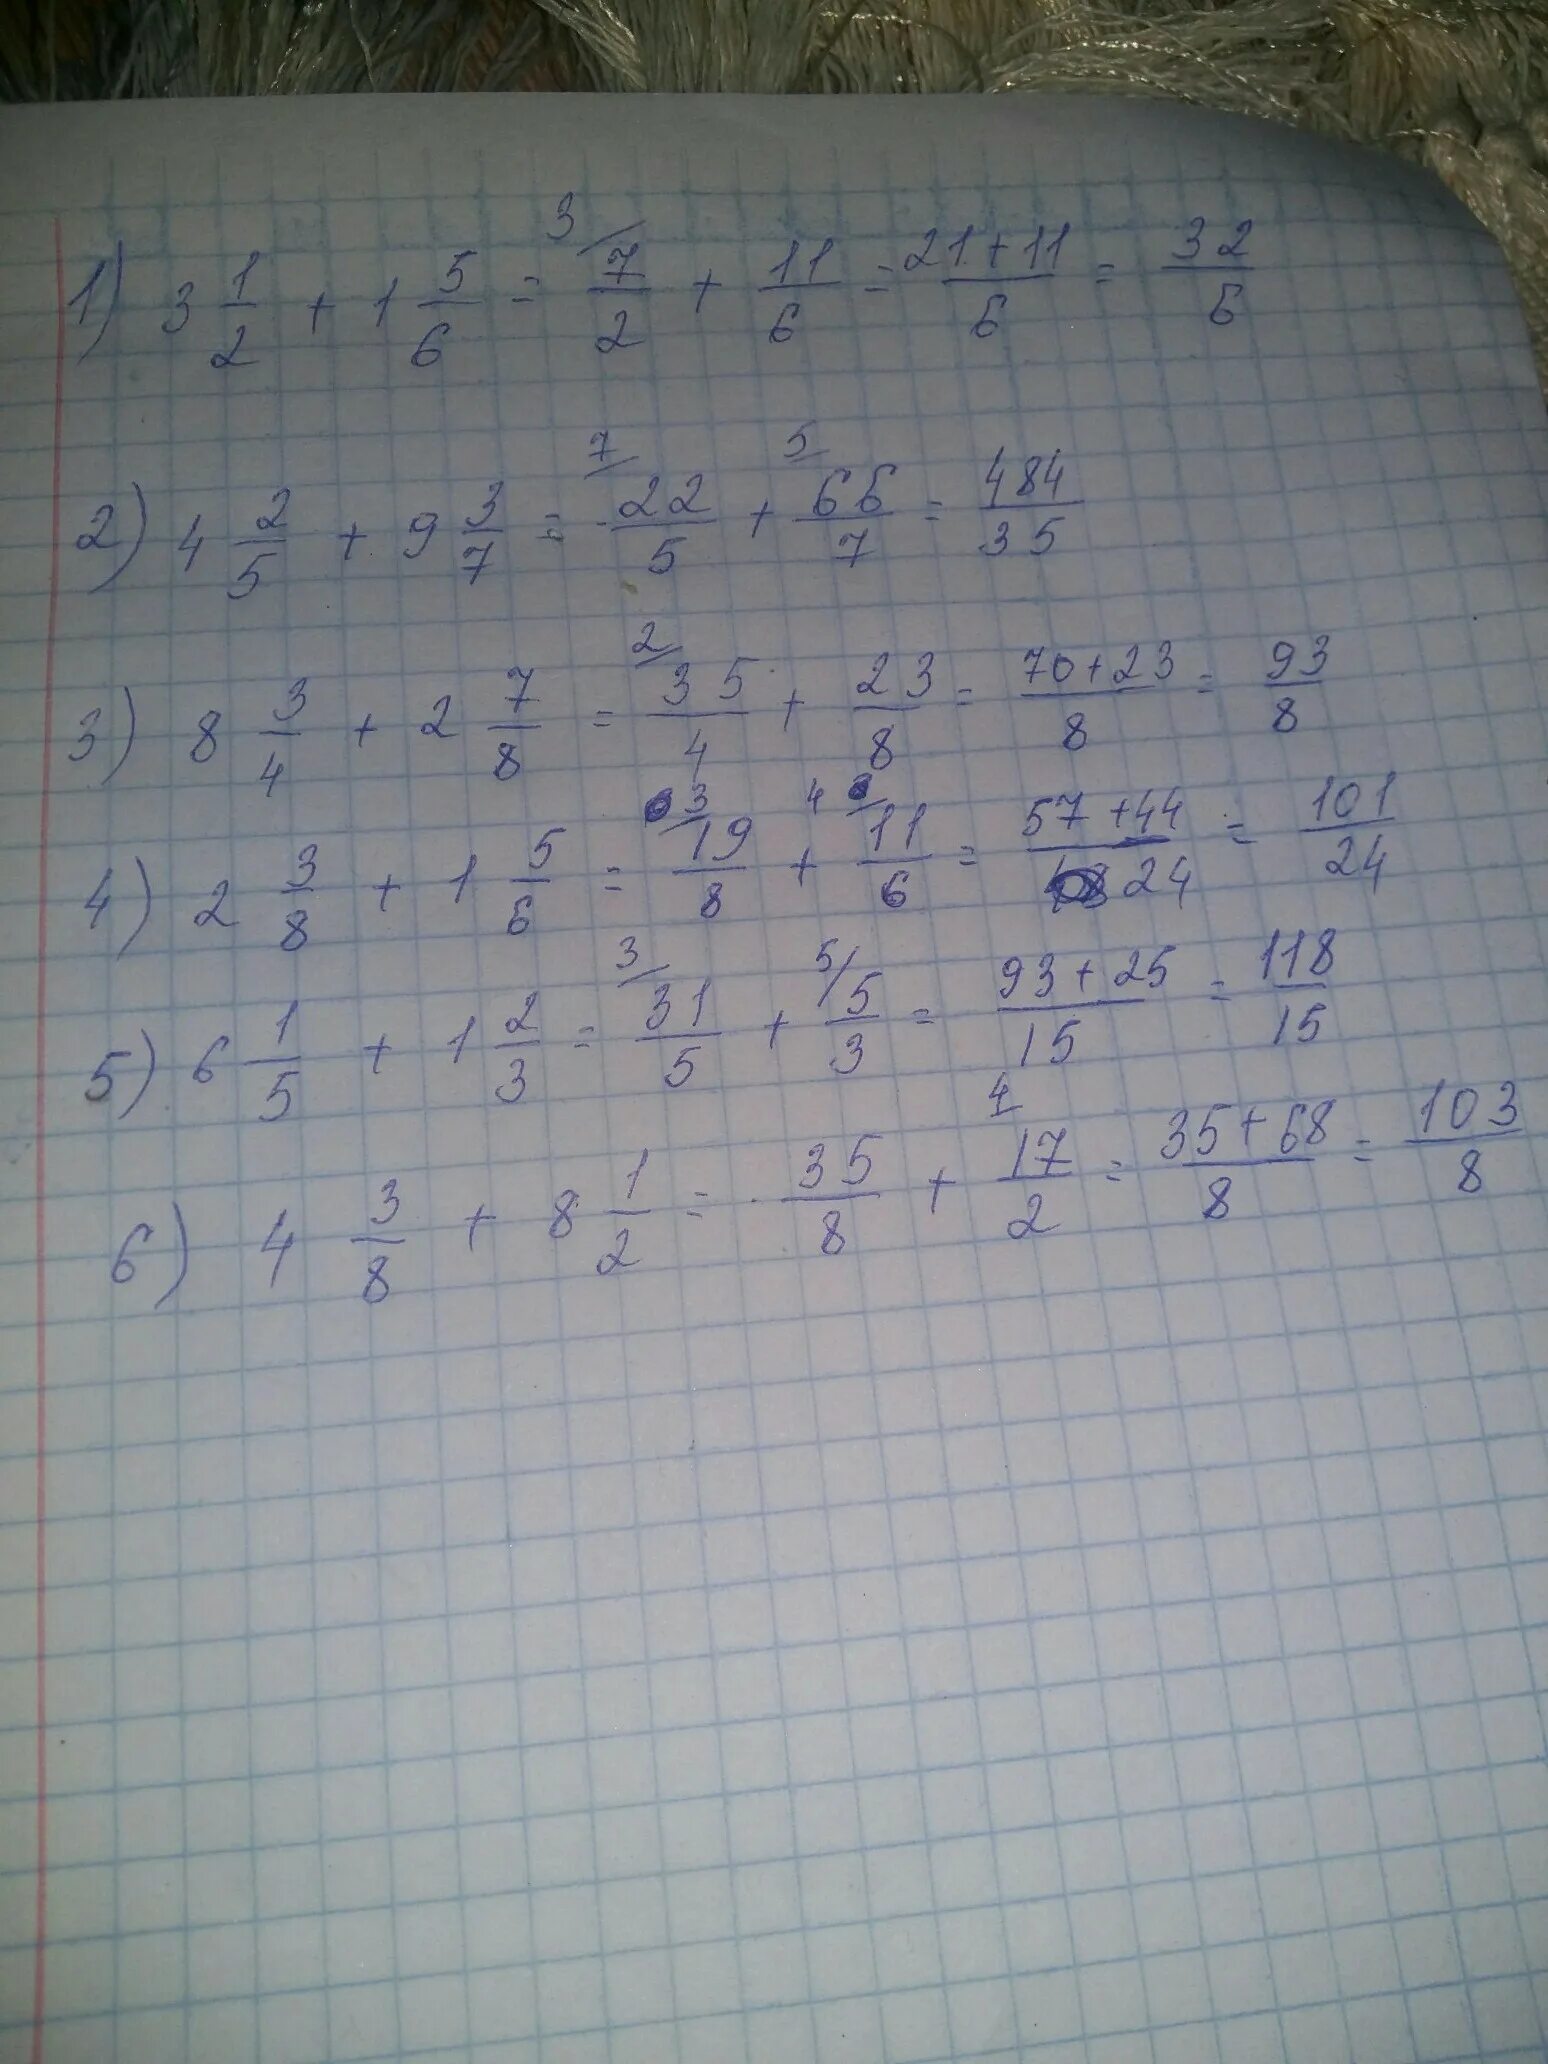 1) 3 1/2 + 1 5/6 = 3/ 7/2 + 11/6 = 21+11/6 = 32/6
2) 4 2/5 + 9 3/7 = 7/ 22/5 + 5/ 66/7 = 484/35
3) 8 3/4 + 2 7/8 = 2/ 35/4 + 23/8 = 70+23/8 = 93/8
4) 2 3/8 + 1 5/6 = 3/ 19/8 + 4/ 11/6 = 57+44/24 = 101/24
5) 6 1/5 + 1 2/3 = 3/ 31/5 + 5/ 5/3 = 93+25/15 = 118/15
6) 4 3/8 + 8 1/2 = 35/8 + 4/ 17/2 = 35+68/8 = 103/8